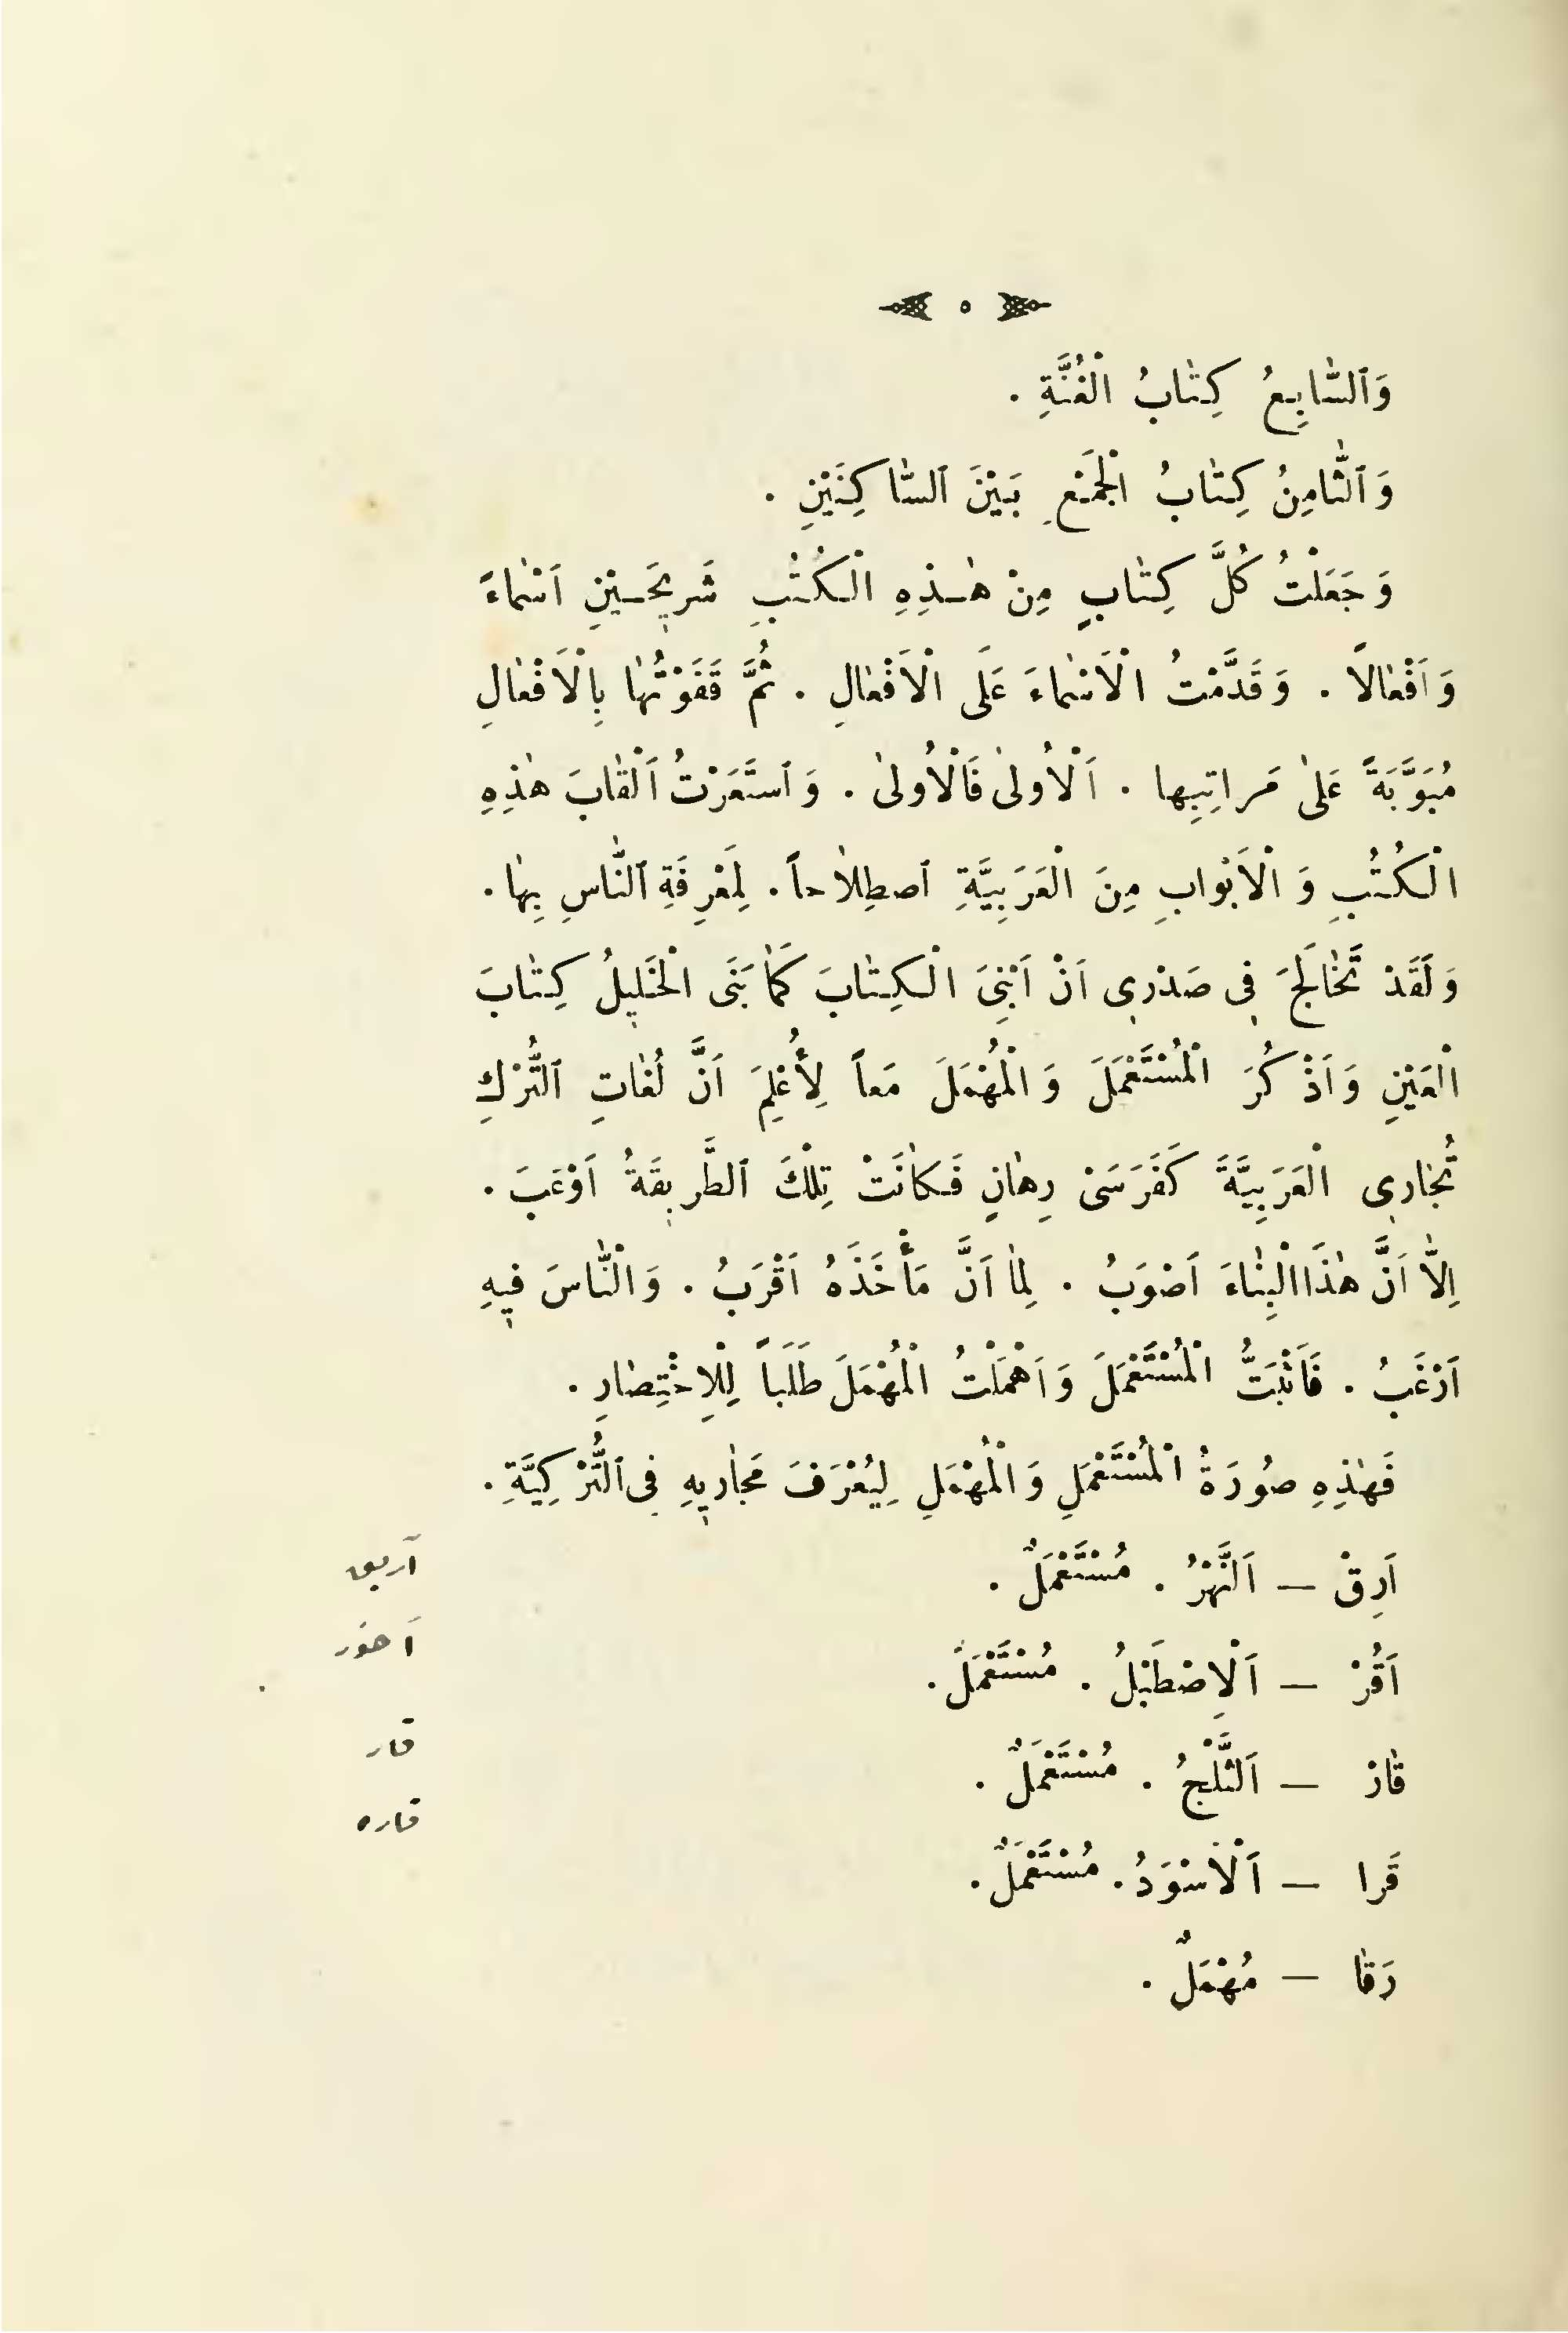 ٥
وَٱلسّٰابِعُ كِتٰابُ الْغُنَّةِ .
وَٱلثّٰامِنُ كِتٰابُ الْجَمْعِ بَيْنَ ٱلسّٰاكِنَيْنِ .
وَجَعَلْتُ كُلَّ كِتٰابٍ مِنْ هٰذِهِ الْكُتُبِ شَرِيجَيْنِ اَسْمٰاءً
وَاَفْعٰالاً . وَقَدَّمْتُ الْاَسْمٰاءَ عَلَى الْاَفْعٰالِ . ثُمَّ قَفَوْتُهٰا بِالْاَفْعٰالِ
مُبَوَّبَةً عَلىٰ مَراتِبِها . اَلْاُولىٰ فَالْاُولىٰ . وَٱستَعَرْتُ اَلْقٰابَ هٰذِهِ
الْكُتُبِ وَ الْاَبْوابِ مِنَ الْعَرَبِيَّةِ ٱصطِلاٰحاً . لِمَعْرِفَةِ ٱلنّٰاسِ بِهٰا .
وَلَقَدْ تَخٰالَجَ فِى صَدْرِى اَنْ اَبْنِىَ الْكِتٰابَ كَمٰا بَنَى الْخَلِيلُ كِتٰابَ
الْعَيْنِ وَاَذْكُرَ الْمُسْتَعْمَلَ وَ الْمُهْمَلَ مَعاً لِأُعْلِمَ اَنَّ لُغٰاتِ ٱلتُّرْكِ
تُجٰارِى الْعَرَبِيَّةَ كَفَرَسَىْ رِهٰانٍ فَكٰانَتْ تِلْكَ ٱلطَّرِيقَةُ اَوْعَبَ .
اِلاّٰ اَنَّ هٰذَا الْبِنٰاءَ اَصْوَبُ . لِمٰا اَنَّ مَأْخَذَهُ اَقْرَبُ . وَالْنّٰاسَ فِيهِ
اَرْغَبُ . فَاَثْبَتُّ الْمُسْتَعْمَلَ وَاَهْمَلْتُ الْمُهْمَلَ طَلَباً لِلْاِخْتِصٰارِ .
فَهٰذِهِ صُورَةُ الْمُسْتَعْمَلِ وَ الْمُهْمَلِ لِيُعْرَفَ مَجٰارِيهِ فِى ٱلتُّرْكِيَّةِ .
اَرِقْ — اَلنَّهْرُ . مُسْتَعْمَلٌ . آریق
اَقُرْ — اَلْاِصْطَبْلُ . مُسْتَعْمَلٌ . آخور
قٰارْ — اَلثَّلْجُ . مُسْتَعْمَلٌ . قار
قَرا — اَلْاَسْوَدُ . مُسْتَعْمَلٌ . قاره
رَقٰا — مُهْمَلٌ .